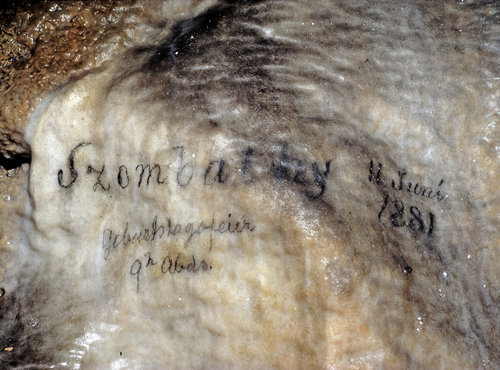 Szombathy
11. Juni
1881
Geburtstagsfeier
9h Abds.